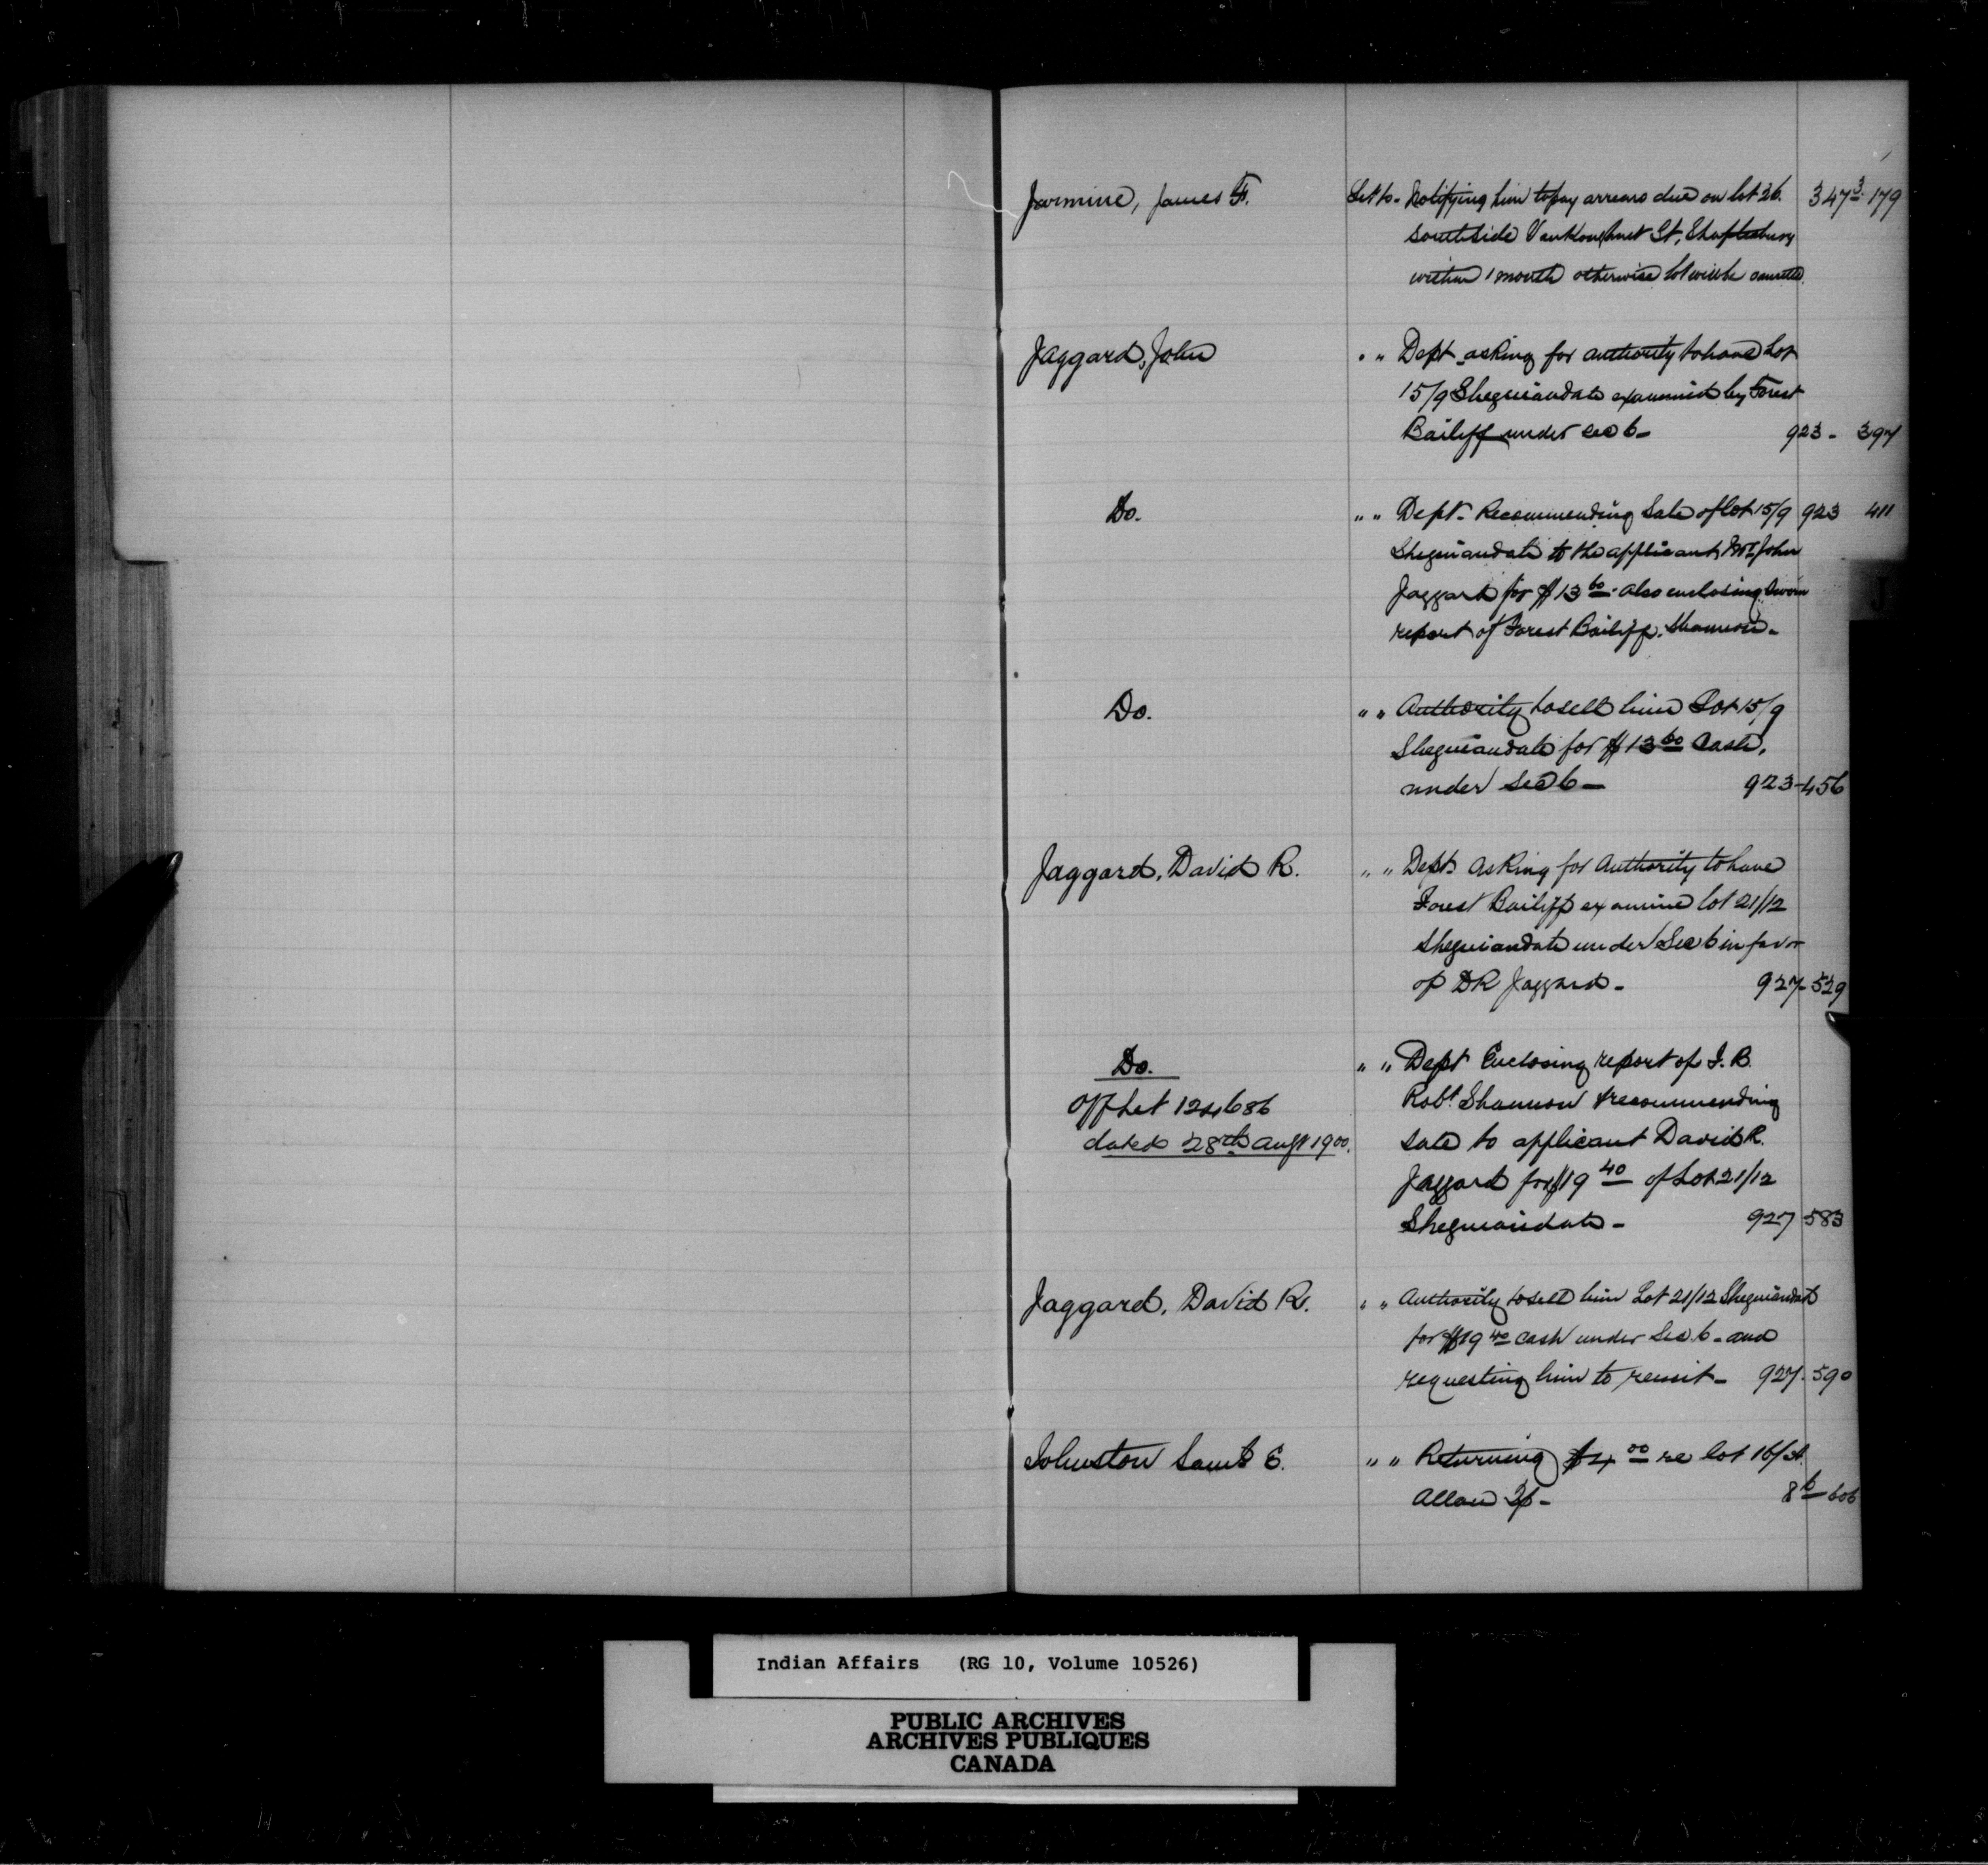 Jarmine, James F. Let to - Notifying him to pay arrears due on lot 26. 347 3 - 179
southside Vankoughnet St, Shaftesbury
within 1 month otherwise lot will be cancelled.
Jaggard, John " " Dept - asking for authority to have Lot
15/9 Sheguiandah examined by Forest
Bailiff under sec 6 - 923 - 397
Do. " " Dept - Recommending Sale of lot 15/9 923 411
Sheguiandah to the applicant Mr. John
Jaggard for $13 60 - also enclosing sworn
report of Forest Bailiff, Shannon -
Do. " " Authority to sell him Lot 15/9
Sheguiandah for $13 60 Cash,
under Sec 6 - 923 - 456
Jaggard, David R. " " Dept. asking for Authority to have
Forest Bailiff examine lot 21/12
Sheguiandah under Sec 6 in favor
of DR Jaggard - 927 - 529
Do. " " Dept Enclosing report of F. B.
Off Let 124686 Robt. Shannon & recommending
dated 28th Augt 1900. sale to applicant David R.
Jaggard for $19 40 of Lot 21/12
Sheguiandah - 927 583
Jaggard, David R. " " Authority to sell him Lot 21/12 Sheguiandah
for $19 40 cash under Sec 6 - and
requesting him to remit - 927 - 590
Johnston Saml E. " " Returning $4 00 re lot 16/
Allan Tp - 8 10 - 606
J
Indian Affairs (RG 10, Volume 10526)
PUBLIC ARCHIVES
ARCHIVES PUBLIQUES
CANADA